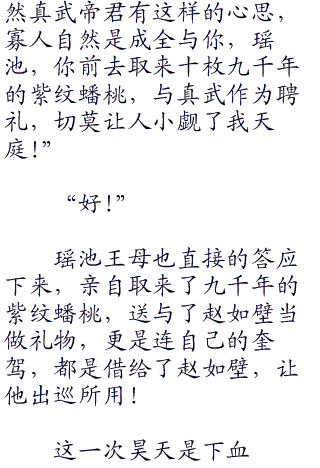 然真武帝君有这样的心思，
寡人自然是成全与你，瑶
池，你前去取来十枚九千年
的紫纹蟠桃，与真武作为聘
礼，切莫让人小觑了我天
庭！”
“好！”
瑶池王母也直接的答应
下来，亲自取来了九千年的
紫纹蟠桃，送与了赵如壁当
做礼物，更是连自己的奎
驾，都是借给了赵如壁，让
他出巡所用！
这一次昊天是下血